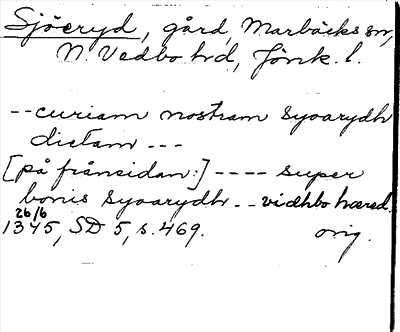 Sjöeryd, gård, Marbäcks sn,
N. Vedbo hd, Jönk. l.
-- curiam nostram syoarydh
dictam ---
[på frånsidan:] ---- super
bonis syoarydh -- vidhbo hæred.
26/6
1345, SD 5, s. 469. orig.